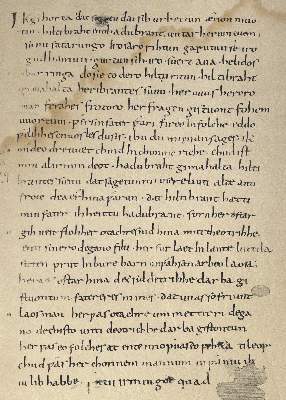 Ik gihorta dat seggen dat sih urhettun ænon muo
tin. hiltibraht enti haðubrant. untar heriun tuem.
sunu fatarungo. iro saro rihtun garutun se iro
guðhamun. gurtun sih. iro. suert ana. helidos
ubar ringa do sie to dero hiltu ritun. hiltibraht
gimahalta heribrantes sunu. her uuas heroro
man ferahes frotoro. her fragen gistuont fohem
uuortum. ƿer sin fater ƿari fireo In folche eddo
ƿelihhes cnuosles du sis. ibu du mi ęnan sages. ik
mideo dreuuet chind In chunincriche. chud ist
min al irmindeot. hadubraht gimahalta hilti
brantes sunu dat sagetun mi usere liuti alte anti
frote dea erhina ƿarun. dat hiltibrant hætti
min fater. ih heittu hadubrant. forn her ostar
gihueit floh her otachres nid hina miti theotrihhe.
enti sinero degano filu. her furlaet In lante luttila
sitten prut In bure barn unƿahsan arbeo laosa.
heraet ostar hina d& sid d&rihhe darba gi
stuontum fatereres mines. dat uuas so friunt
laos man her ƿas otachre ummettirri dega
no dechisto unti deotrichhe darba gistontun
her ƿas eo folches at ente imo ƿuas eo feh&a ti leop.
chud ƿas her chonnem mannum ni ƿaniu ih
iu lib habbe ƿettu irmingot quad